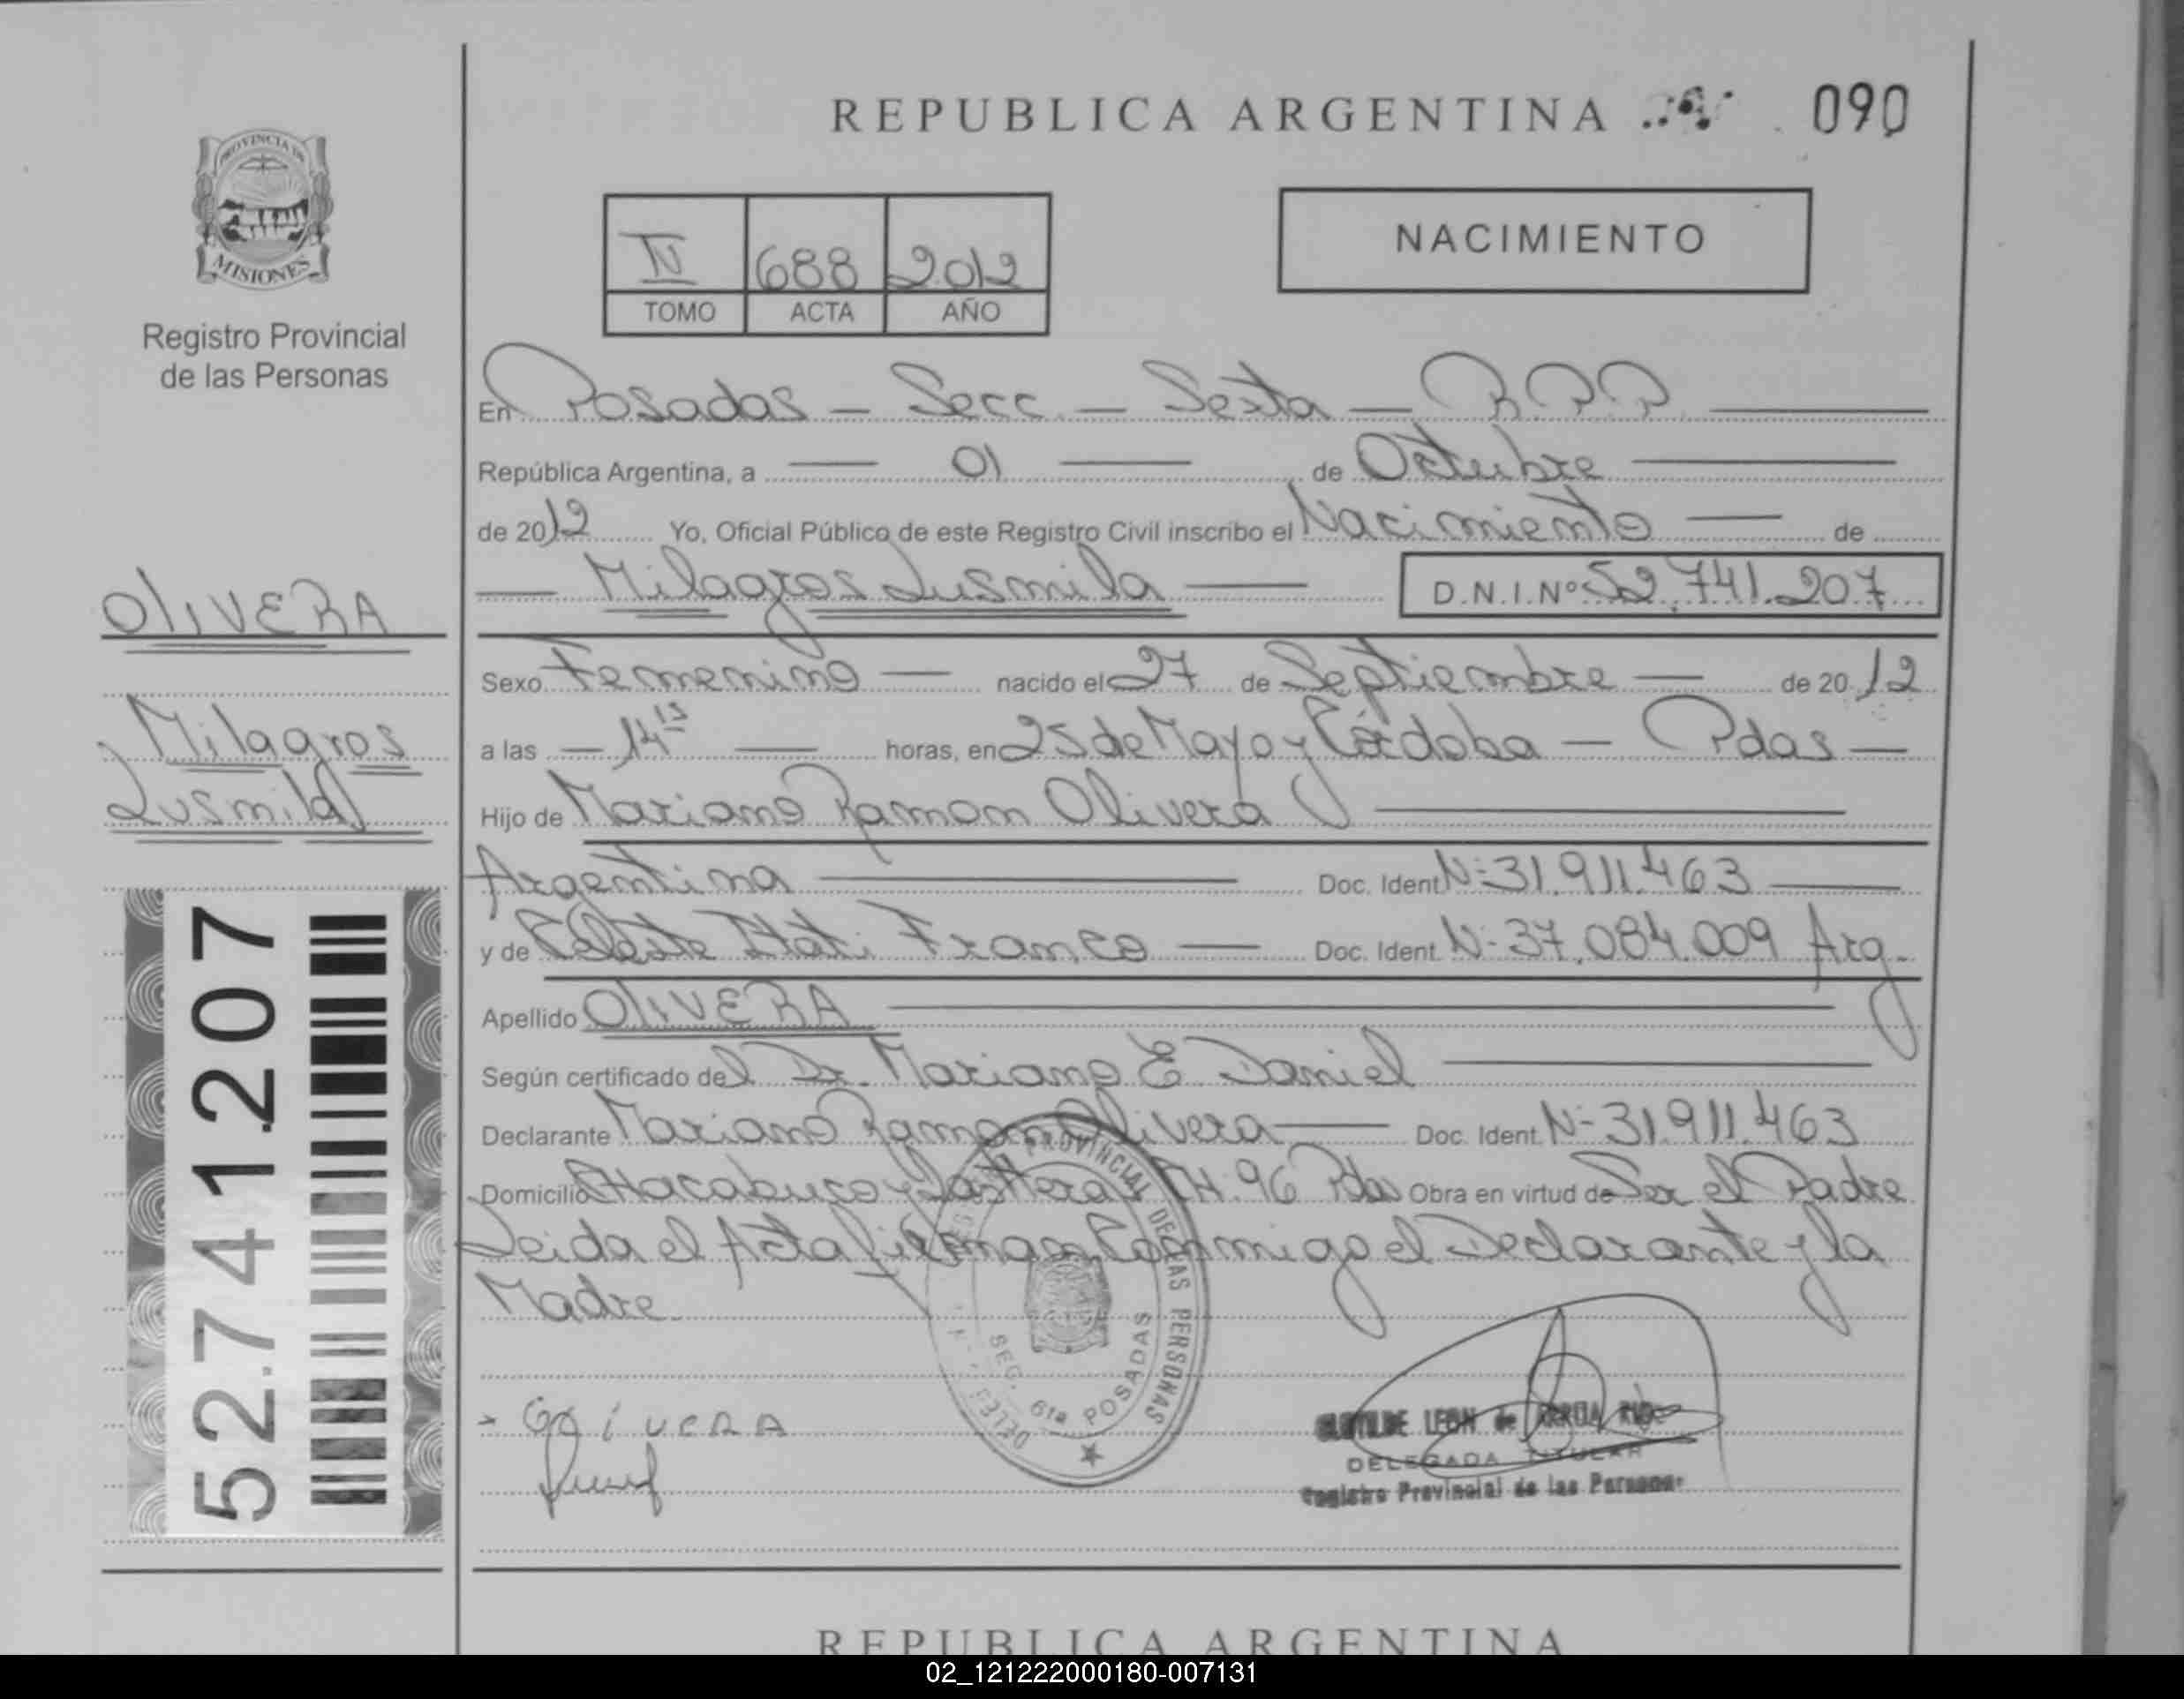 REPUBLICA ARGENTINA
090
PROVINCIA DE
MISIONES
Registro Provincial
de las Personas
688 2012
TOMO ACTA AÑO
NACIMIENTO
En Posadas – Secc – Sexta – R.P.P.
República Argentina, a 01 de Octubre
de 2012 Yo, Oficial Público de este Registro Civil inscribo el Nacimiento de
Milagros Lusmila D.N.I.Nº 52.741.207
OLIVERA
Milagros
Lusmila
Sexo Femenino nacido el 27 de Septiembre de 2012
a las 14 15 horas, en 25 de Mayo y Córdoba – Pdas
Hijo de Mariano Ramon Olivera
Argentina Doc. Ident N- 31.911.463
y de Celeste Itati Franco Doc. Ident. N- 37.084.009 Arg.
Apellido OLIVERA
Según certificado del Dr. Mariano E Daniel
Declarante Mariano Ramon Olivera Doc. Ident. N- 31.911.463
Domicilio Chacabuco y 96 Pdas Obra en virtud de Ser el Padre
Leida el Acta firman Conmigo el Declarante y la
Madre
52.741.207
PROVINCIAL DE LAS PERSONAS
SEC. 61a POSADAS
OLIVERA
LEON de ARRUA
DELEGADA TITULAR
Registro Provincial de las Personas
REPUBLICA ARGENTINA
02_121222000180-007131